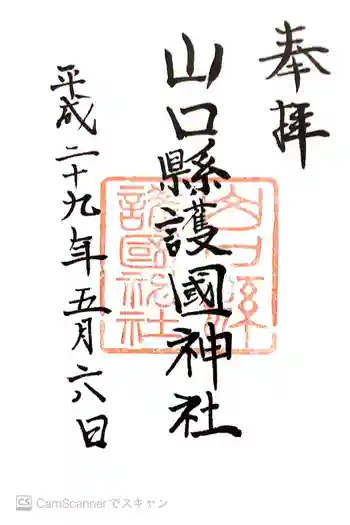 奉拝
山口縣護國神社
平成二十九年五月六日
山口縣
護國神社
CS CamScannerでスキャン